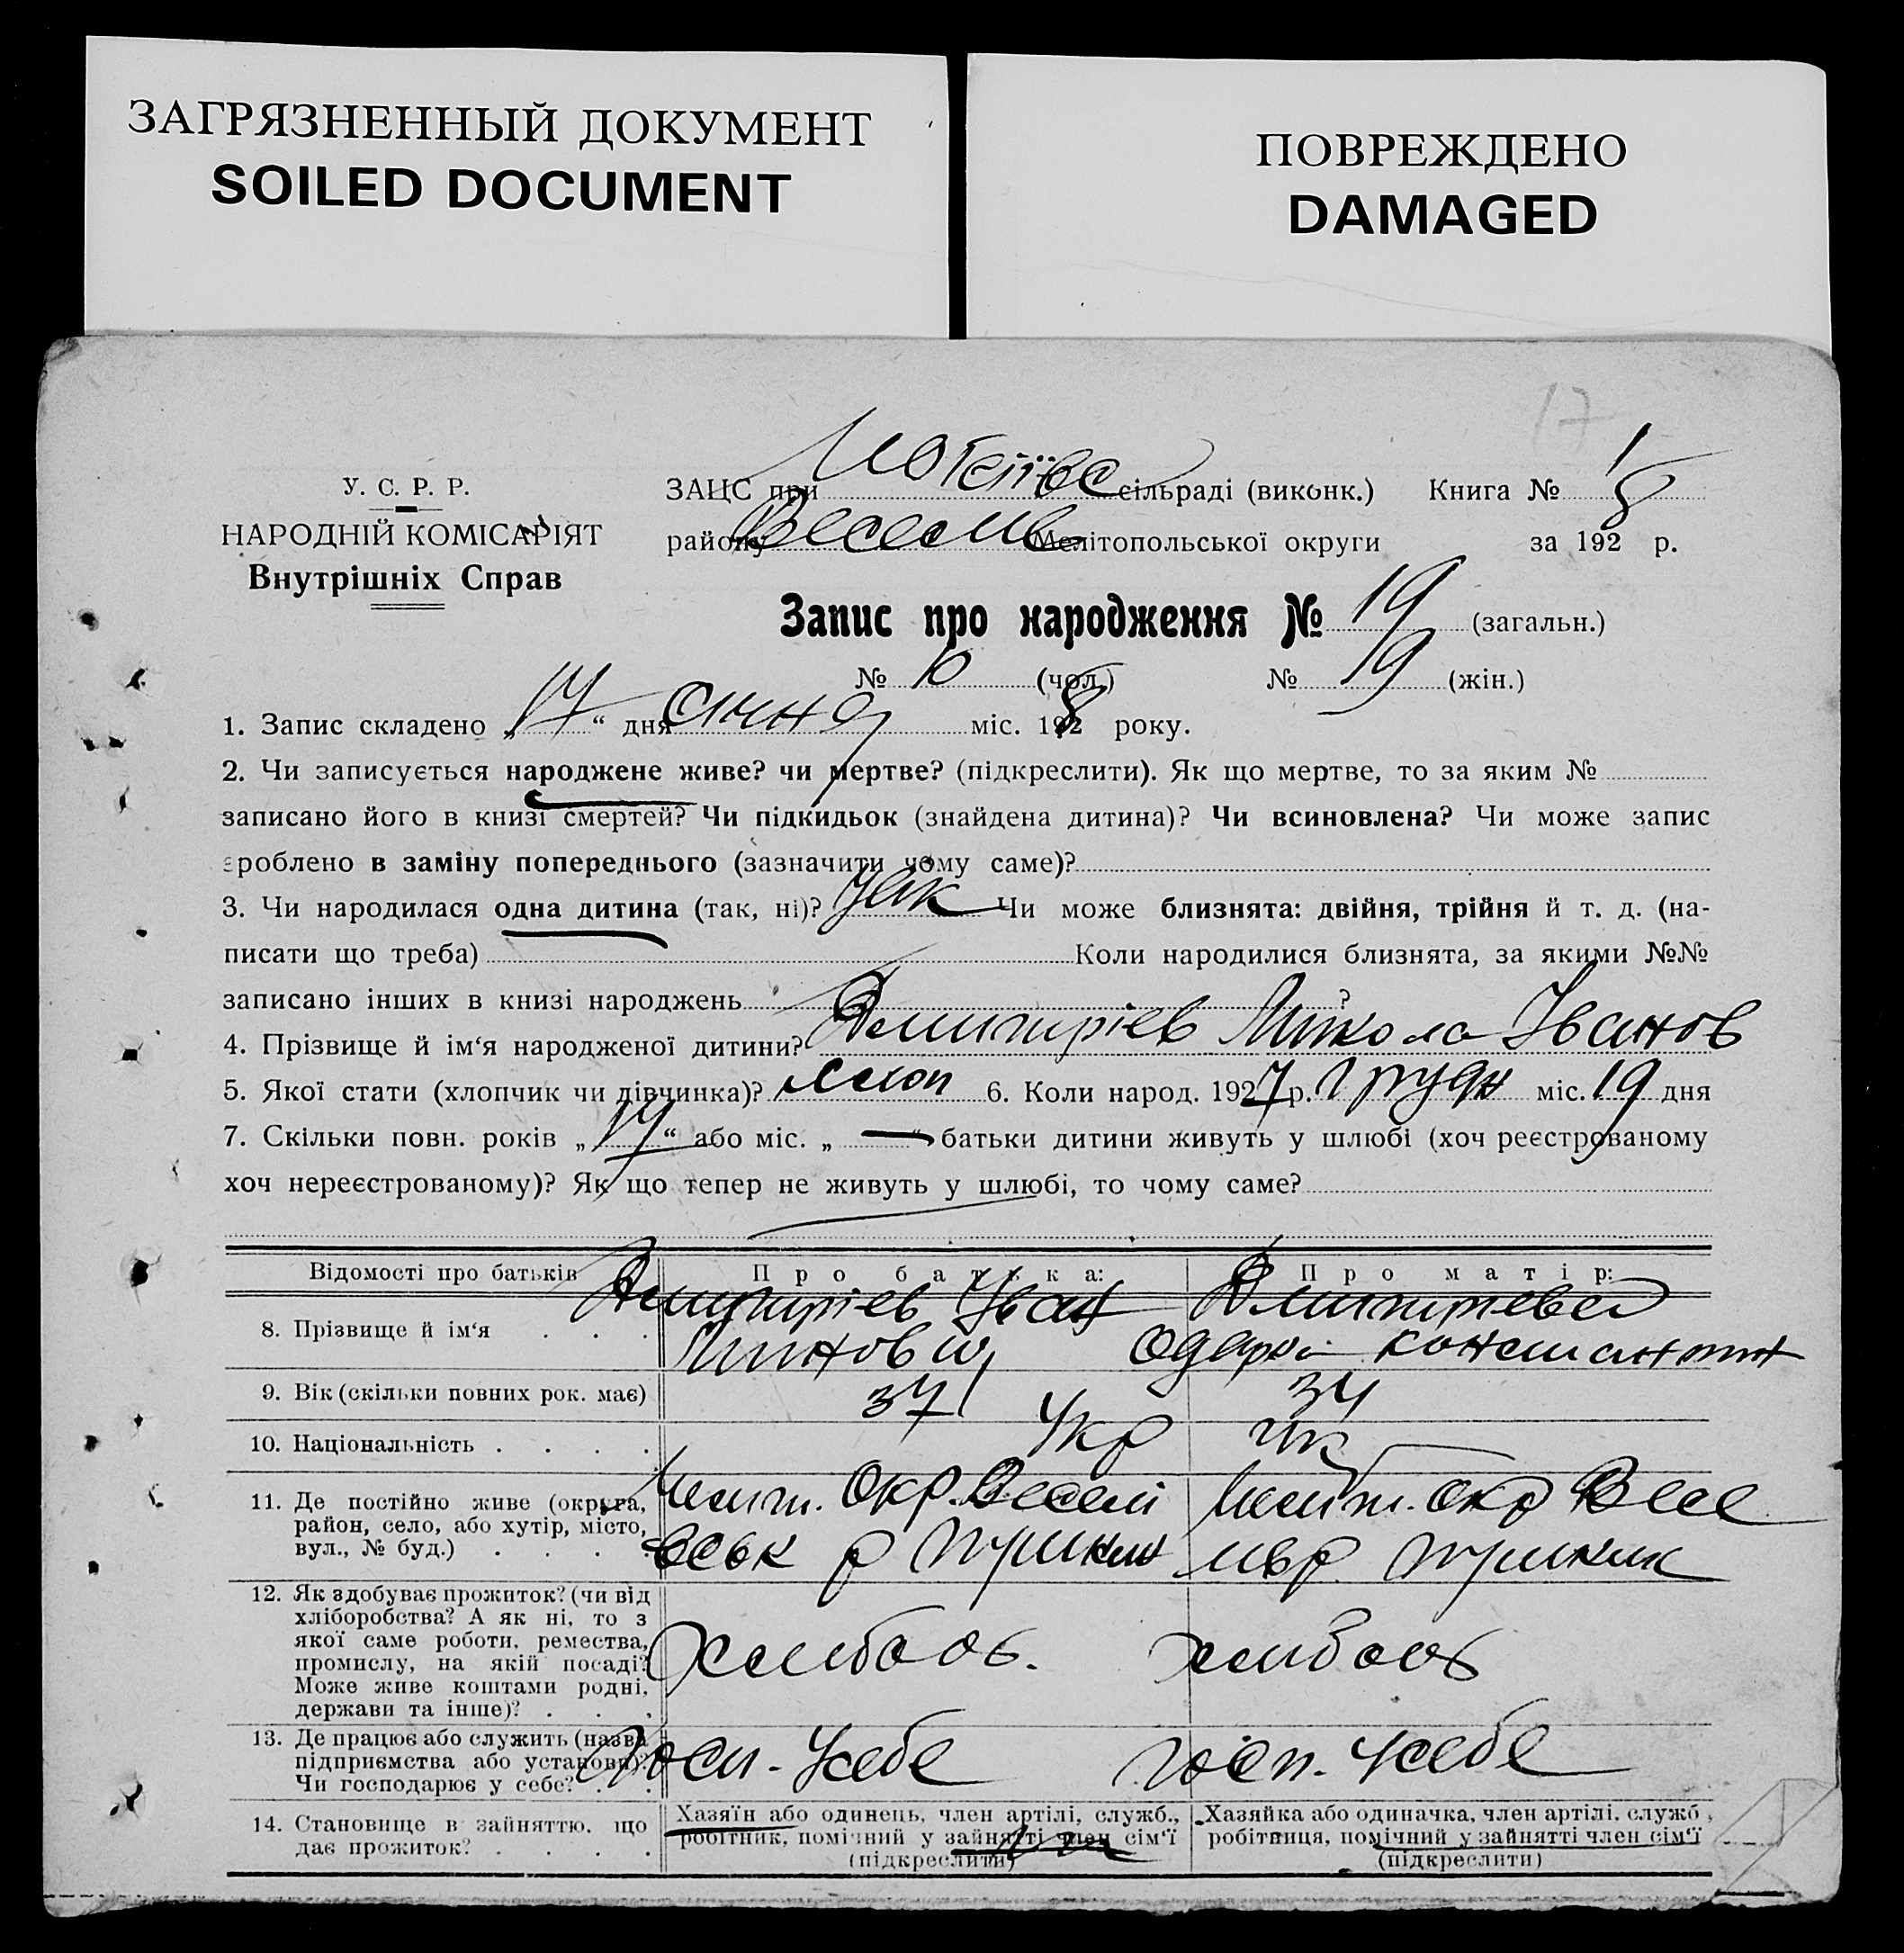 ЗАГРЯЗНЕННЫЙ ДОКУМЕНТ
SOILED DOCUMENT
ПОВРЕЖДЕНО
DAMAGED
17
У. С. Р. Р.
НАРОДНІЙ КОМІСАРІЯТ
Внутрішніх Справ
ЗАЦС при сільраді (виконк.) Книга № 1
району Веселів Мелітопольської округи за 1928 р.
Запис про народження № 19 (загальн.)
№ 10 (чол.) № 19 (жін.)
1. Запис складено „17“ дня січня міс. 1928 року.
2. Чи записується народжене живе? чи мертве? (підкреслити). Як що мертве, то за яким №
записано його в книзі смертей? Чи підкидьок (знайдена дитина)? Чи всиновлена? Чи може запис
зроблено в заміну попереднього (зазначити чому саме)?
3. Чи народилася одна дитина (так, ні)? Так Чи може близнята: двійня, трійня й т. д. (на-
писати що треба) Коли народилися близнята, за якими №№
записано інших в книзі народжень ?
4. Прізвище й ім‘я народженої дитини? Дмитрієв Микола Іванов
5. Якої стати (хлопчик чи дівчинка)? хлоп 6. Коли народ. 1927 р. Грудн міс. 19 дня
7. Скільки повн. років „17“ або міс. „—“ батьки дитини живуть у шлюбі (хоч реєстрованому
хоч нереєстрованому)? Як що тепер не живуть у шлюбі, то чому саме?
Відомості про батьків Про батька: Про матір:
8. Прізвище й ім‘я . . . Дмитрієв Іван Дмитрієва
Одарка Константин
9. Вік (скільки повних рок. має) 37 34
10. Національність . . . . Укр
11. Де постійно живе (округа, Меліт. Окр. Веселі Меліт. окр Весе
район, село, або хутір, місто, вськ р Пушкин лівр. Пушкин
вул., № буд.) . . . .
12. Як здобуває прожиток? (чи від
хліборобства? А як ні, то з
якої саме роботи, ремества,
промислу, на якій посаді?
Може живе коштами родні,
держави та інше)? . . .
13. Де працює або служить (назва
підприємства або установи)? Госп. Усебе Госп. Усебе
Чи господарює у себе? . .
14. Становище в зайняттю, що
дає прожиток? . . . .
Хазяїн або одинець, член артілі, служб.,
робітник, помічний у зайнятті член сім‘ї
(підкреслити)
Хазяйка або одиначка, член артілі, служб.,
робітниця, помічний у зайнятті член сім‘ї
(підкреслити)